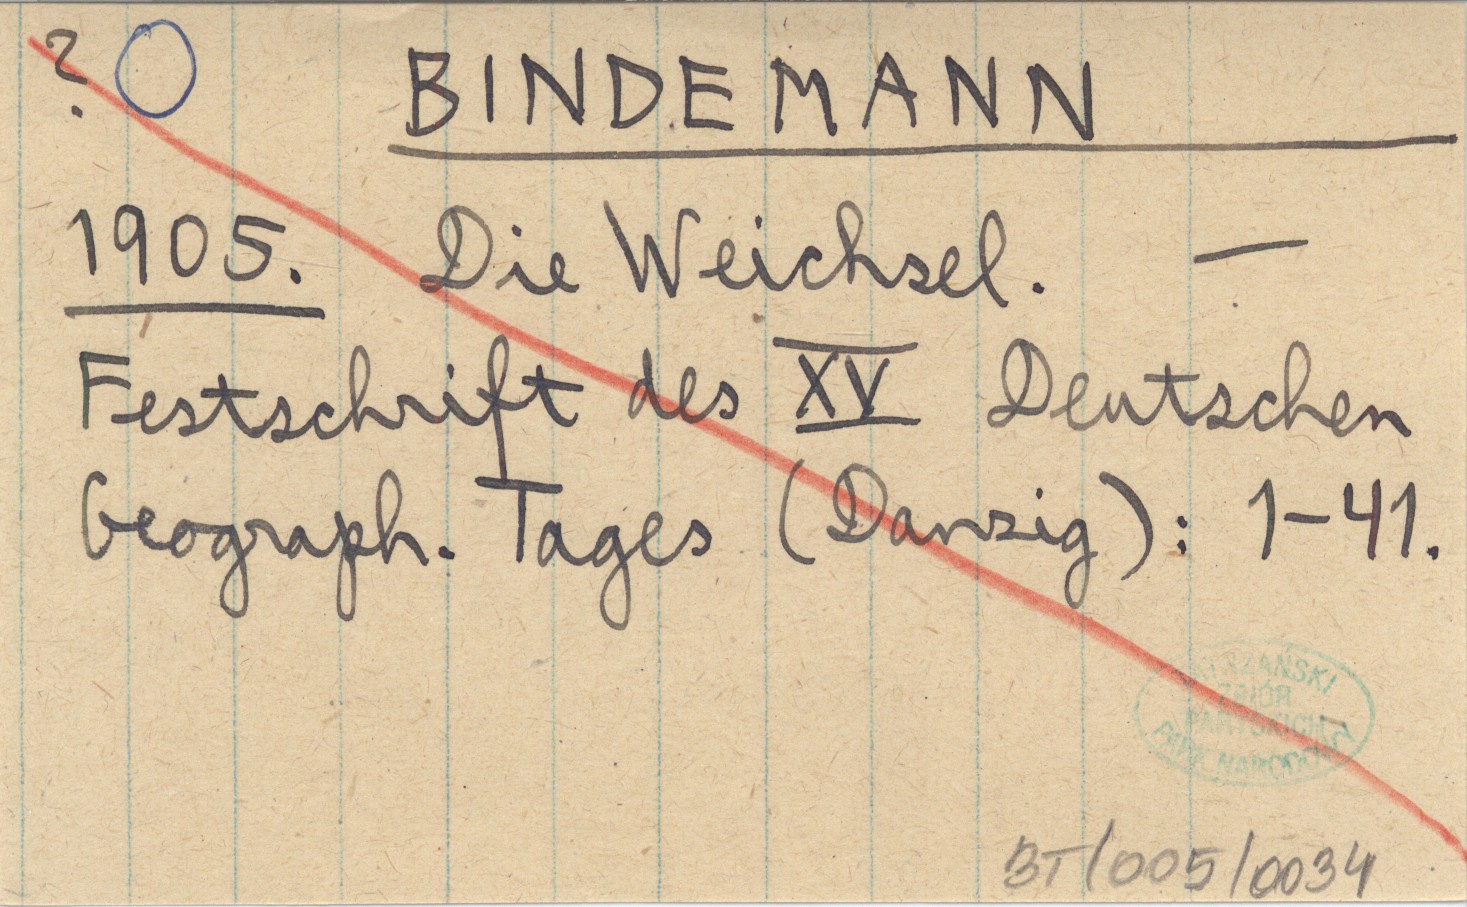 ? O BINDEMANN
1905. Die Weichsel. —
Festschrift des XV Deutschen
Geograph. Tages (Danzig): 1-41.
ZBIÓR
BT/005/0034